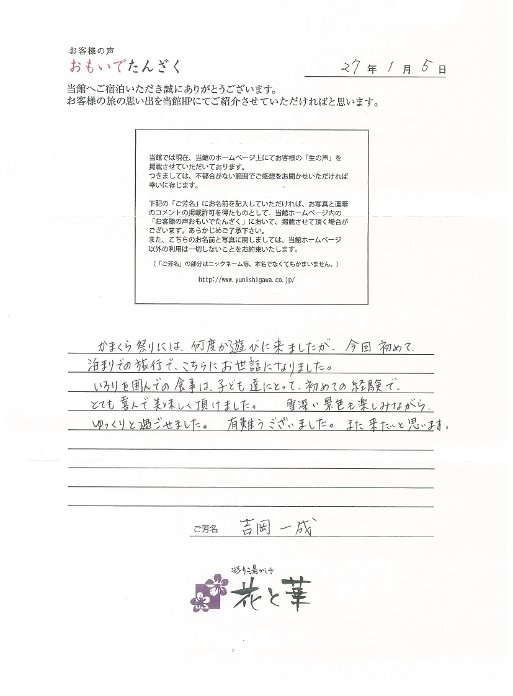 お客様の声
おもいでたんざく
27年 1月 5日
当館へご宿泊いただき誠にありがとうございます。
お客様の旅の思い出を当館HPにてご紹介させていただければと思います。
当館では現在、当館のホームページ上にてお客様の「生の声」を
掲載させていただいております。
つきましては、不都合がない範囲でご感想をお聞かせいただければ
幸いに存じます。
下記の「ご芳名」にお名前を記入していただければ、お写真と直筆
のコメントの掲載許可を得たものとして、当館ホームページ内の
「お客様の声おもいでたんざく」において、掲載させて頂く場合が
ございます。あらかじめご了承下さい。
また、こちらのお名前と写真に関しましては、当館ホームページ
以外の利用は一切しないことをお約束いたします。
(「ご芳名」の部分はニックネーム等、本名でなくてもかまいません。)
http://www.yunishigawa.co.jp/
かまくら祭りには、何度か遊びに来ましたが、今回 初めて、
泊まりでの旅行で、こちらにお世話になりました。
いろりを囲んでの食事は、子ども達にとって、初めての経験で、
とても喜んで美味しく頂けました。 雪深い景色も楽しみながら、
ゆっくりと過ごせました。 有難うございました。また来たいと思います。
ご芳名 吉岡 一成
花と華